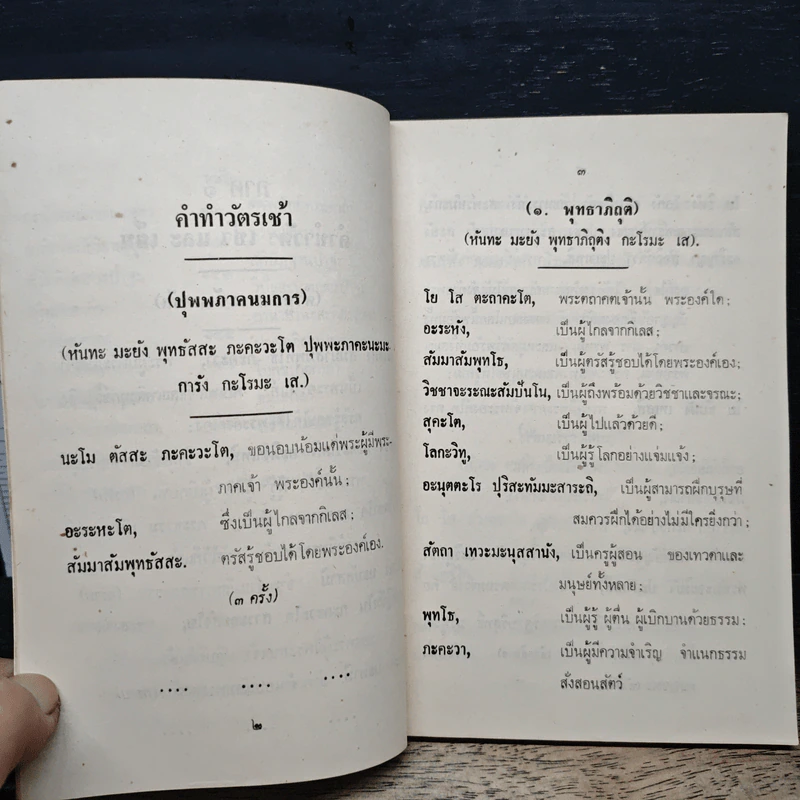 คำทำวัตรเช้า
(ปุพพภาคนมการ)
(หันทะ มะยัง พุทธัสสะ ภะคะวะโต ปุพพะภาคะนะมะ
การัง กะโรมะ เส.)
นะโม ตัสสะ ภะคะวะโต, ขอนอบน้อมแด่พระผู้มีพระ-
ภาคเจ้า พระองค์นั้น;
อะระหะโต, ซึ่งเป็นผู้ไกลจากกิเลส;
สัมมาสัมพุทธัสสะ. ตรัสรู้ชอบได้โดยพระองค์เอง.
(๓ ครั้ง)
.... .... ....
๒
๓
(๑. พุทธาภิถุติ)
(หันทะ มะยัง พุทธาภิถุติง กะโรมะ เส).
โย โส ตะถาคะโต, พระตถาคตเจ้านั้น พระองค์ใด;
อะระหัง, เป็นผู้ไกลจากกิเลส;
สัมมาสัมพุทโธ, เป็นผู้ตรัสรู้ชอบได้โดยพระองค์เอง;
วิชชาจะระณะสัมปันโน, เป็นผู้ถึงพร้อมด้วยวิชชาและจรณะ;
สุคะโต, เป็นผู้ไปแล้วด้วยดี;
โลกะวิทู, เป็นผู้รู้โลกอย่างแจ่มแจ้ง;
อะนุตตะโร ปุริสะทัมมะสาระถิ, เป็นผู้สามารถฝึกบุรุษที่
สมควรฝึกได้อย่างไม่มีใครยิ่งกว่า;
สัตถา เทวะมะนุสสานัง, เป็นครูผู้สอน ของเทวดาและ
มนุษย์ทั้งหลาย;
พุทโธ, เป็นผู้รู้ ผู้ตื่น ผู้เบิกบานด้วยธรรม;
ภะคะวา, เป็นผู้มีความจำเริญ จำแนกธรรม
สั่งสอนสัตว์